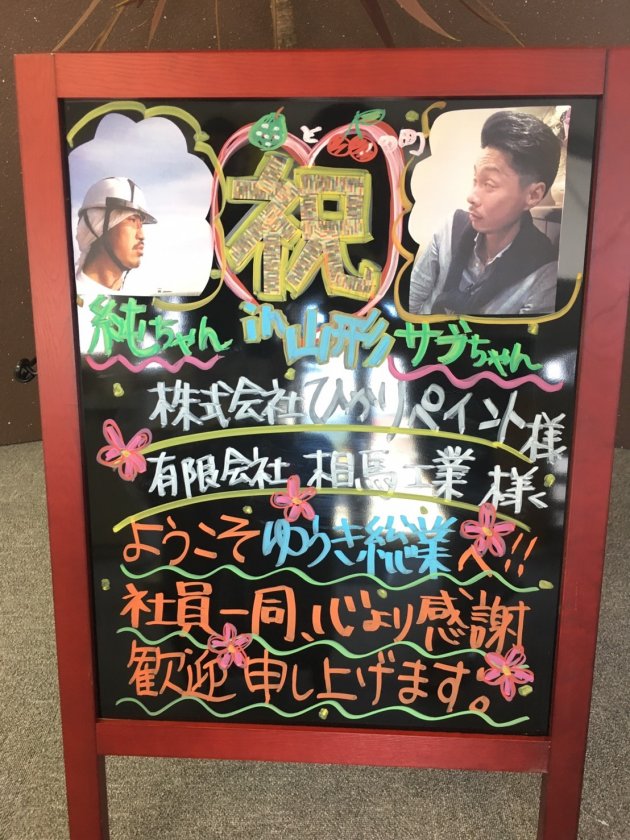 と の町
祝
純ちゃん in山形 サブちゃん
株式会社ひかりペイント様
有限会社 相馬工業 様
ようこそ ゆうき総業へ!!
社員一同、心より感謝
歓迎申し上げます。